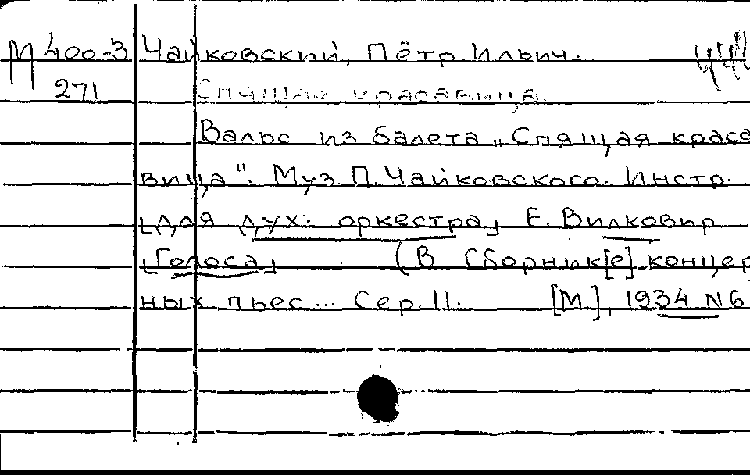 М 400-3 Чайковский, Пётр Ильич.
271 Спящая красавица.
Вальс из балета „Спящая краса
вица". Муз П. Чайковского. Инстр.
[для дух. оркестра] Е. Вилковир
[Голоса] (В Сборник[е] концер
ных пьес... Сер II. [М.], 1934 N 6